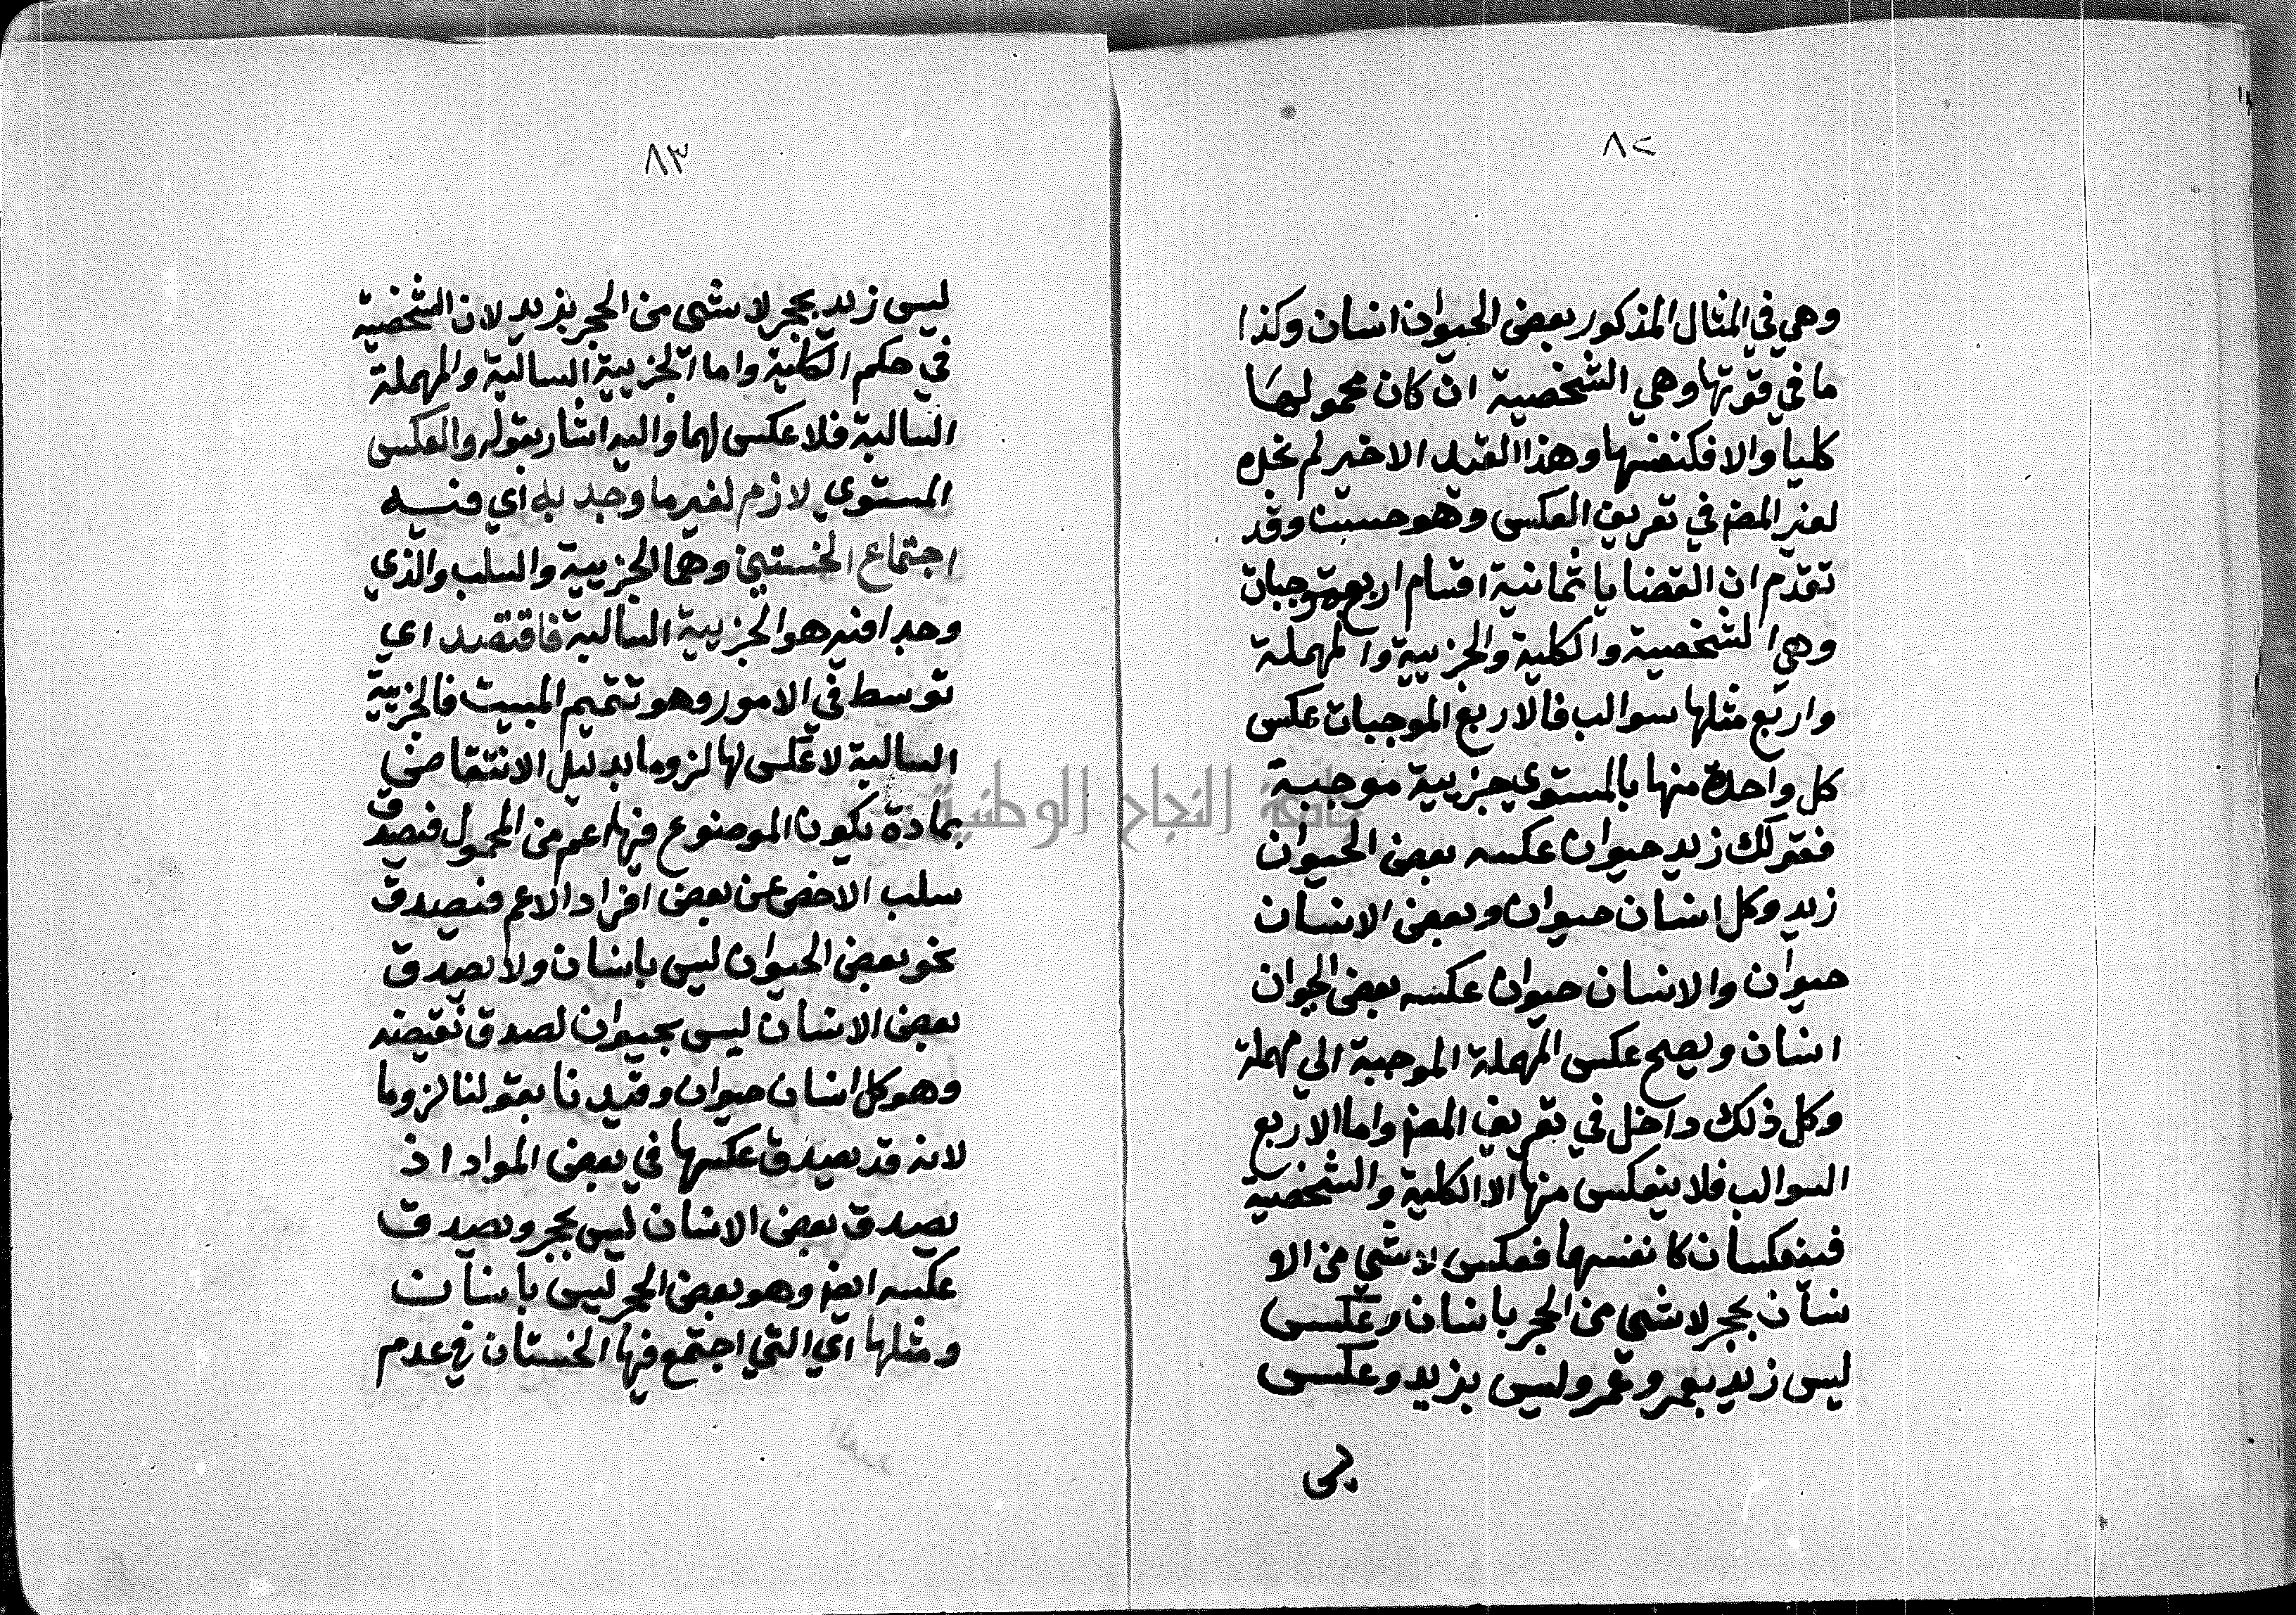 ٨٢
وهي في المثال المذكور بعض الحيوان انسان وكذا
ما في قوتها وهي الشخصية ان كان محمولها
كليا والا فكنفسها وهذا القيد الاخير لم نجده
لغير المص في تعريف العكس وهو حسن وقد
تقدم ان القضايا ثمانية اقسام اربع موجبات
وهي الشخصية والكلية والجزيية والمهملة
واربع مثلها سوالب فالاربع الموجبات عكس
كل واحدة منها بالمستوي جزيية موجبة
فقولك زيد حيوان عكسه بعض الحيوان
زيد وكل انسان حيوان وبعض الانسان
حيوان والانسان حيوان عكسه بعض الحيوان
انسان ويصح عكس المهملة الموجبة الي مهملة
وكل ذلك داخل في تعريف المص واما الاربع
السوالب فلا ينعكس منها الا الكلية والشخصية
فينعكسان كانفسهما فعكس لا شي من الا
نسان بحجر لا شي من الحجر بانسان وعكس
ليس زيد بعمرو عمرو ليس بزيد وعكس
٨٣
ليس زيد بحجر لا شي من الحجر بزيد لان الشخصية
في حكم الكلية واما الجزيية السالبة والمهملة
السالبة فلا عكس لهما واليه اشار بقوله والعكس
المستوي لازم لغير ما وجد به اي فيه
اجتماع الخستين وهما الجزيية والسلب والذي
وجدا فيه هو الجزيية السالبة فاقتصد اي
توسط في الامور وهو تتميم للبيت فالجزيية
السالبة لا عكس لها لزوما بدليل الانتقاض
بمادة يكون الموضوع فيها اعم من المحمول فيصدق
سلب الاخص عن بعض افراد الاعم فيصدق
نحو بعض الحيوان ليس بانسان ولا يصدق
بعض الانسان ليس بحيوان لصدق نقيضه
وهو كل انسان حيوان وقيدنا بقولنا لزوما
لانه قد يصدق عكسها في بعض المواد اذ
يصدق بعض الانسان ليس بحجر ويصدق
عكسه ايض وهو بعض الحجر ليس بانسان
ومثلها اي التي اجتمع فيها الخستان في عدم
جامعة النجاح الوطنية